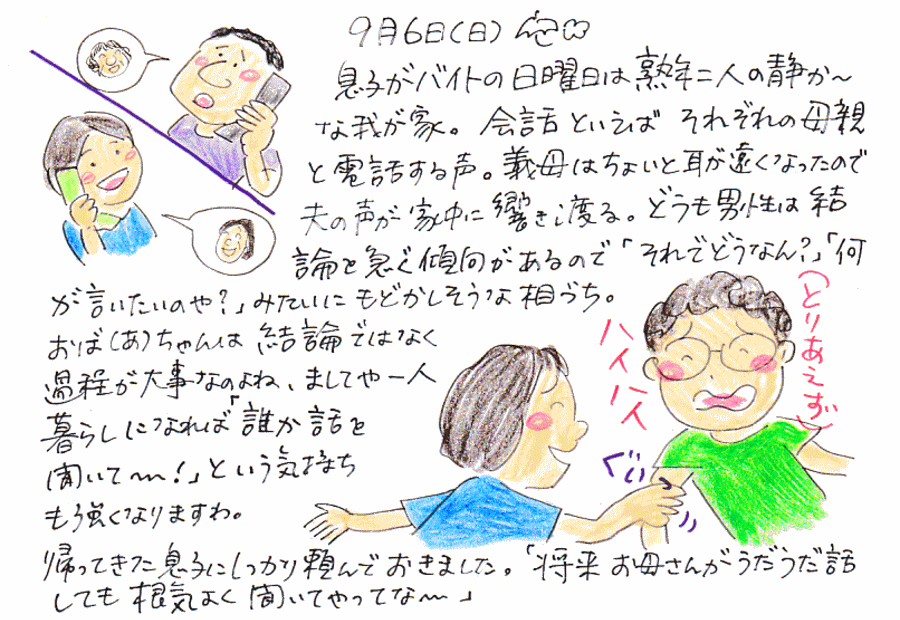 9月6日(日)
息子がバイトの日曜日は熟年二人の静か〜
な我が家。会話といえば それぞれの母親
と電話する声。義母はちょいと耳が遠くなったので
夫の声が家中に響き渡る。どうも男性は結
論を急ぐ傾向があるので「それでどうなん?」「何
が言いたいのや?」みたいにもどかしそうな相づち。
おば(あ)ちゃんは結論ではなく
過程が大事なのよね、ましてや一人
暮らしになれば「誰か話を
聞いて〜!」という気持ち
も強くなりますわ。
(とりあえず)
ハイハイ
ぐいっ
帰ってきた息子にしっかり頼んでおきました。「将来お母さんがうだうだ話
しても根気よく聞いてやってな〜」